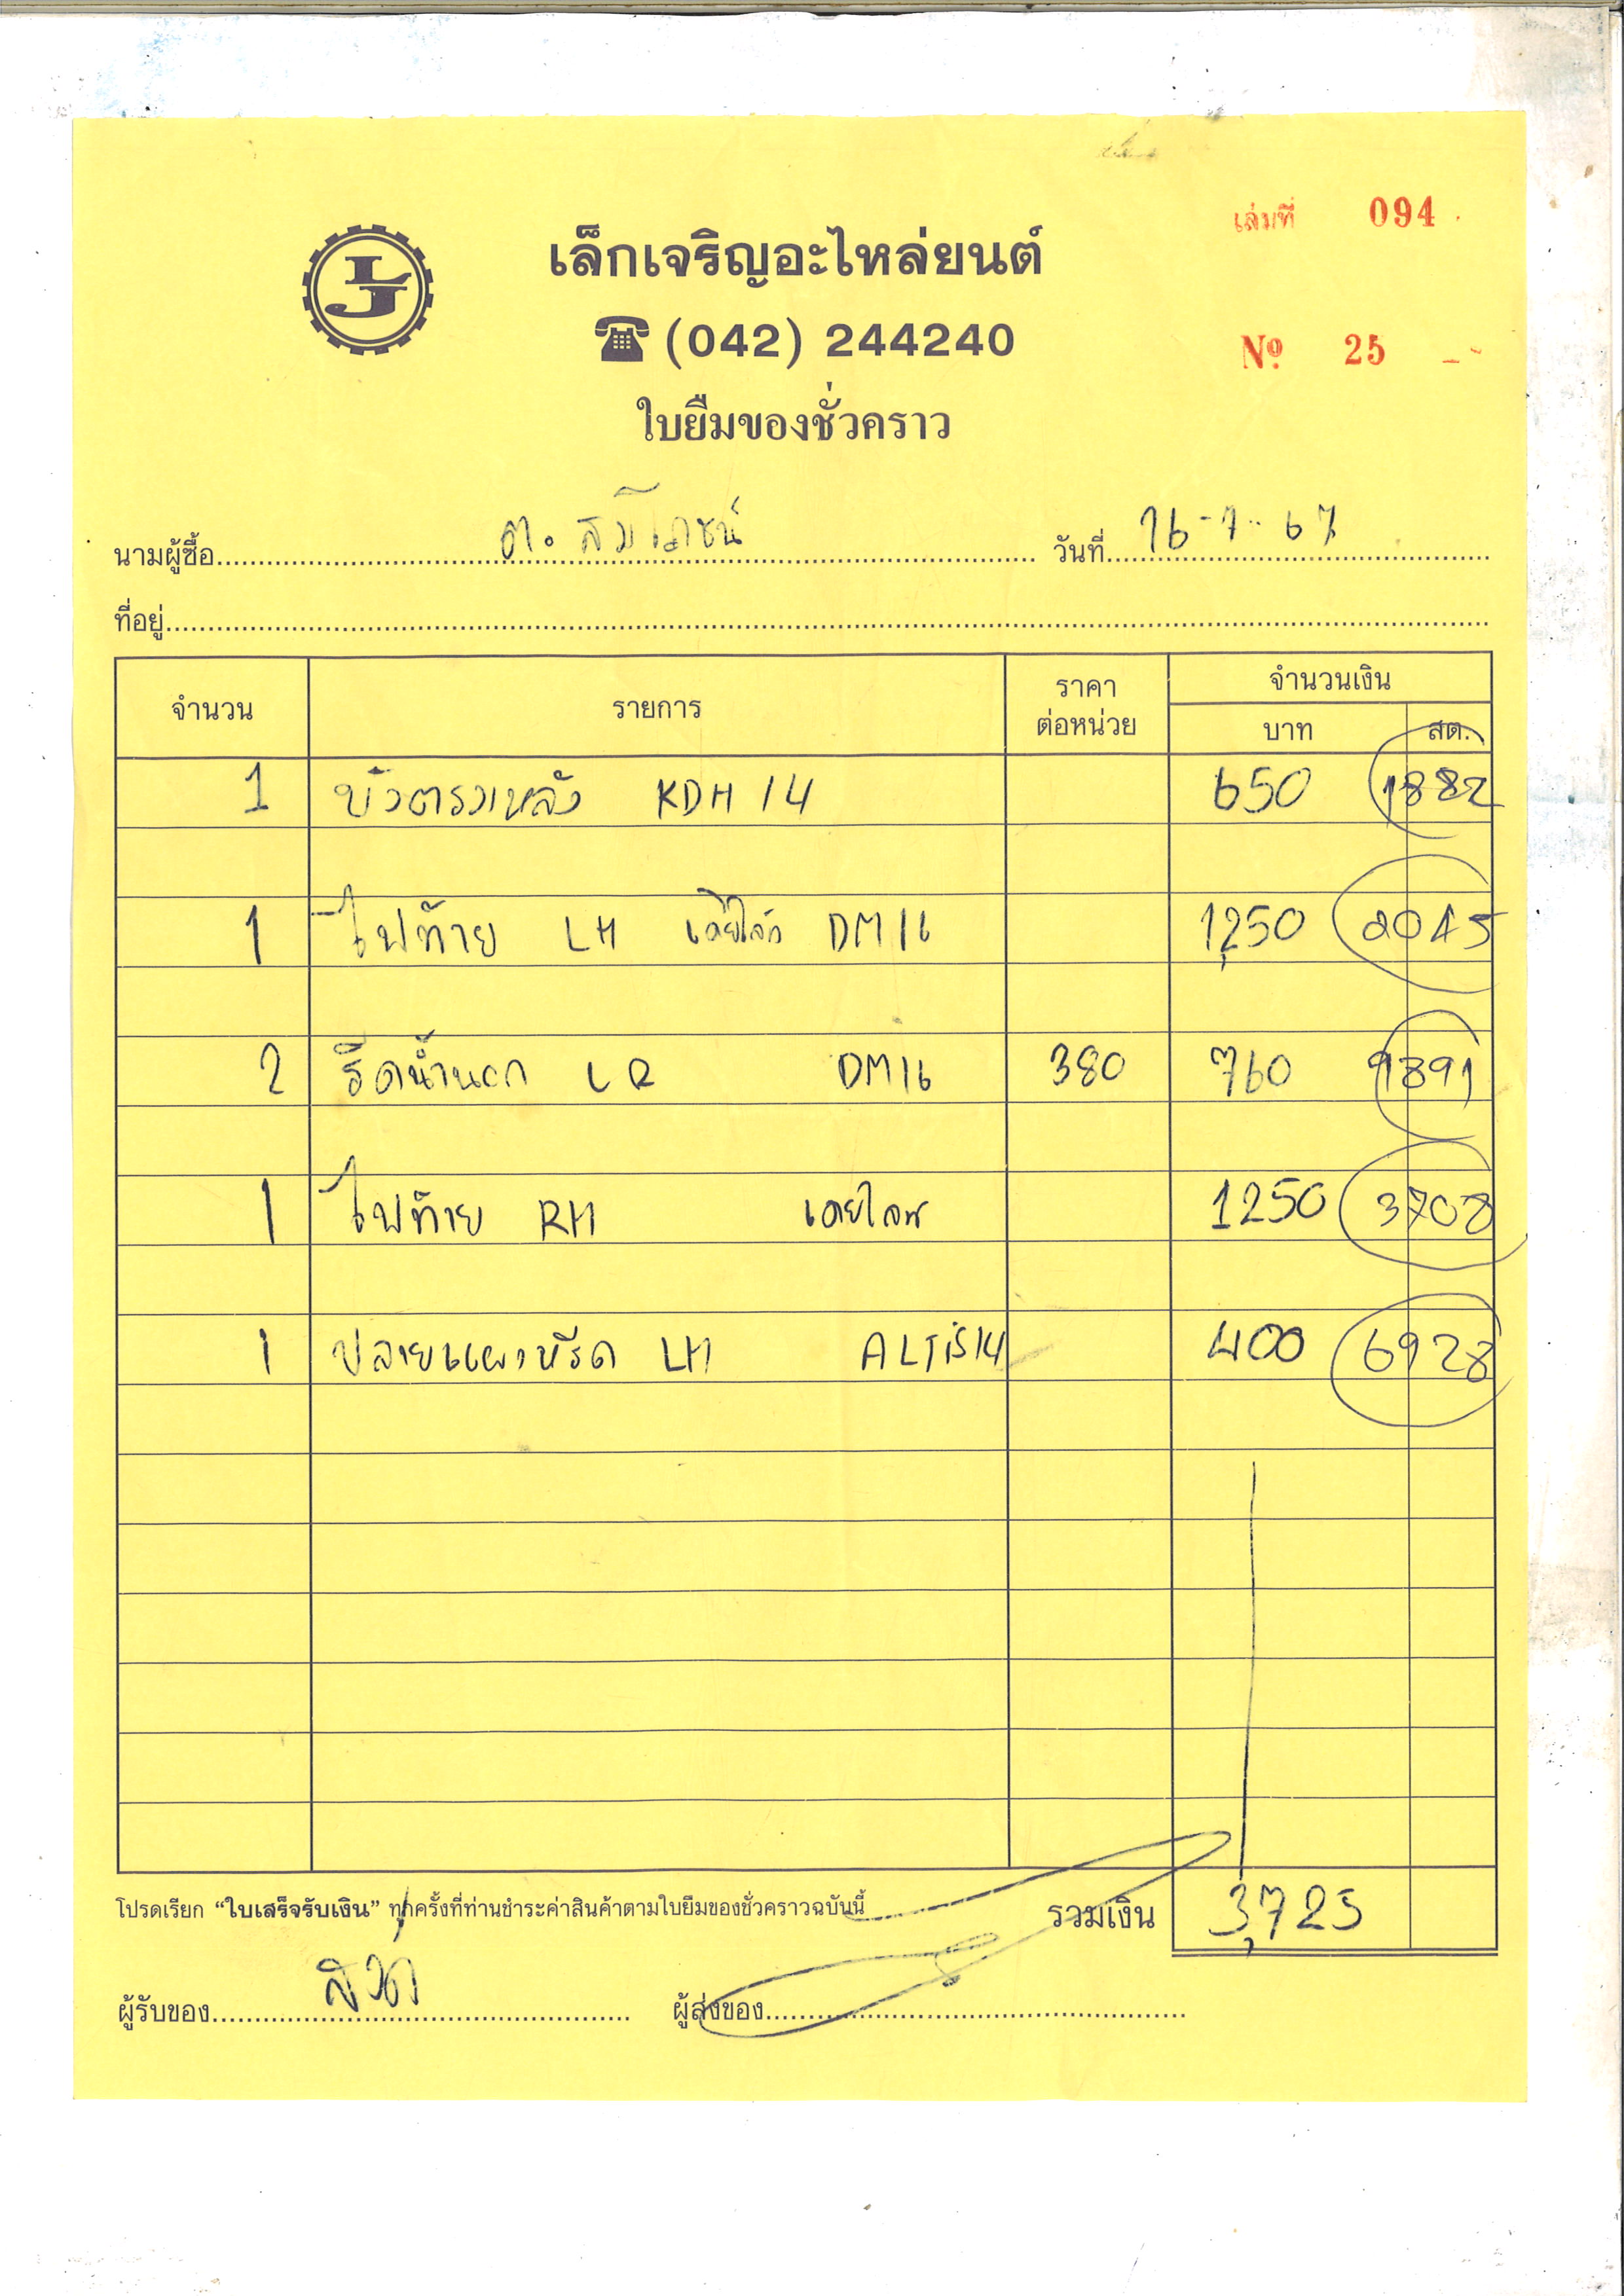 เล่มที่ 094
เล็กเจริญอะไหล่ยนต์
LJ
(042) 244240
Nº 25
ใบยืมของชั่วคราว
นามผู้ซื้อ วันที่ 16-7-67
ที่อยู่
จำนวน รายการ ราคาต่อหน่วย จำนวนเงิน
บาท สต.
1 KDH 14 650 1882
1 ไฟท้าย LH DM16 1250 2045
2 รีดน้ำนอก LR DM16 380 760 9891
1 ไฟท้าย RH 1250 3708
1 LH ALTIS14 400 6928
โปรดเรียก “ใบเสร็จรับเงิน” ทุกครั้งที่ท่านชำระค่าสินค้าตามใบยืมของชั่วคราวฉบับนี้ รวมเงิน 3,725
ผู้รับของ ผู้ส่งของ